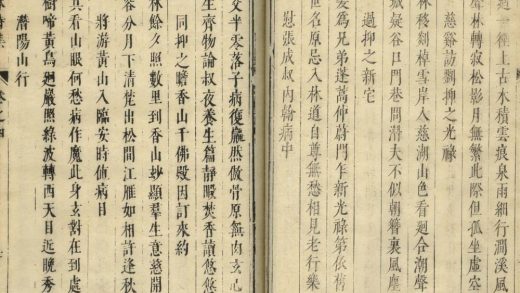 過一徑上古木積雲痕泉雨細行澗溪風
聲林轉寂松影月無繁此際但孤坐虛空
慈谿訪劉抑之光祿
林移剡棹雪岸入慈湖山色看迴合潮聲
城疑谷口門巷間潛夫不似朝簪裏風塵
過抑之新宅
爰為兄弟蓬蒿仲蔚門乍新光祿第依舊
世名原忌入林道自尊無愁相見老行樂
慰張成叔内翰病中
父半零落子病復巋然傲骨原無肉玄心
生齊物論叔夜養生篇靜暇焚香讀悠悠
同抑之瞻香山千佛殿因訂來約
林餘夕照數里到香山妙顯羣生意慈開
谷分月下清梵出松間江雁如相許逢秋
將游黄山入臨安時值病目
具看山眼何愁病作魔此身玄對在到處
樹啼黄鳥迴巖照綠波轉西天目近晚秀
潛陽山行
詩集 卷之四